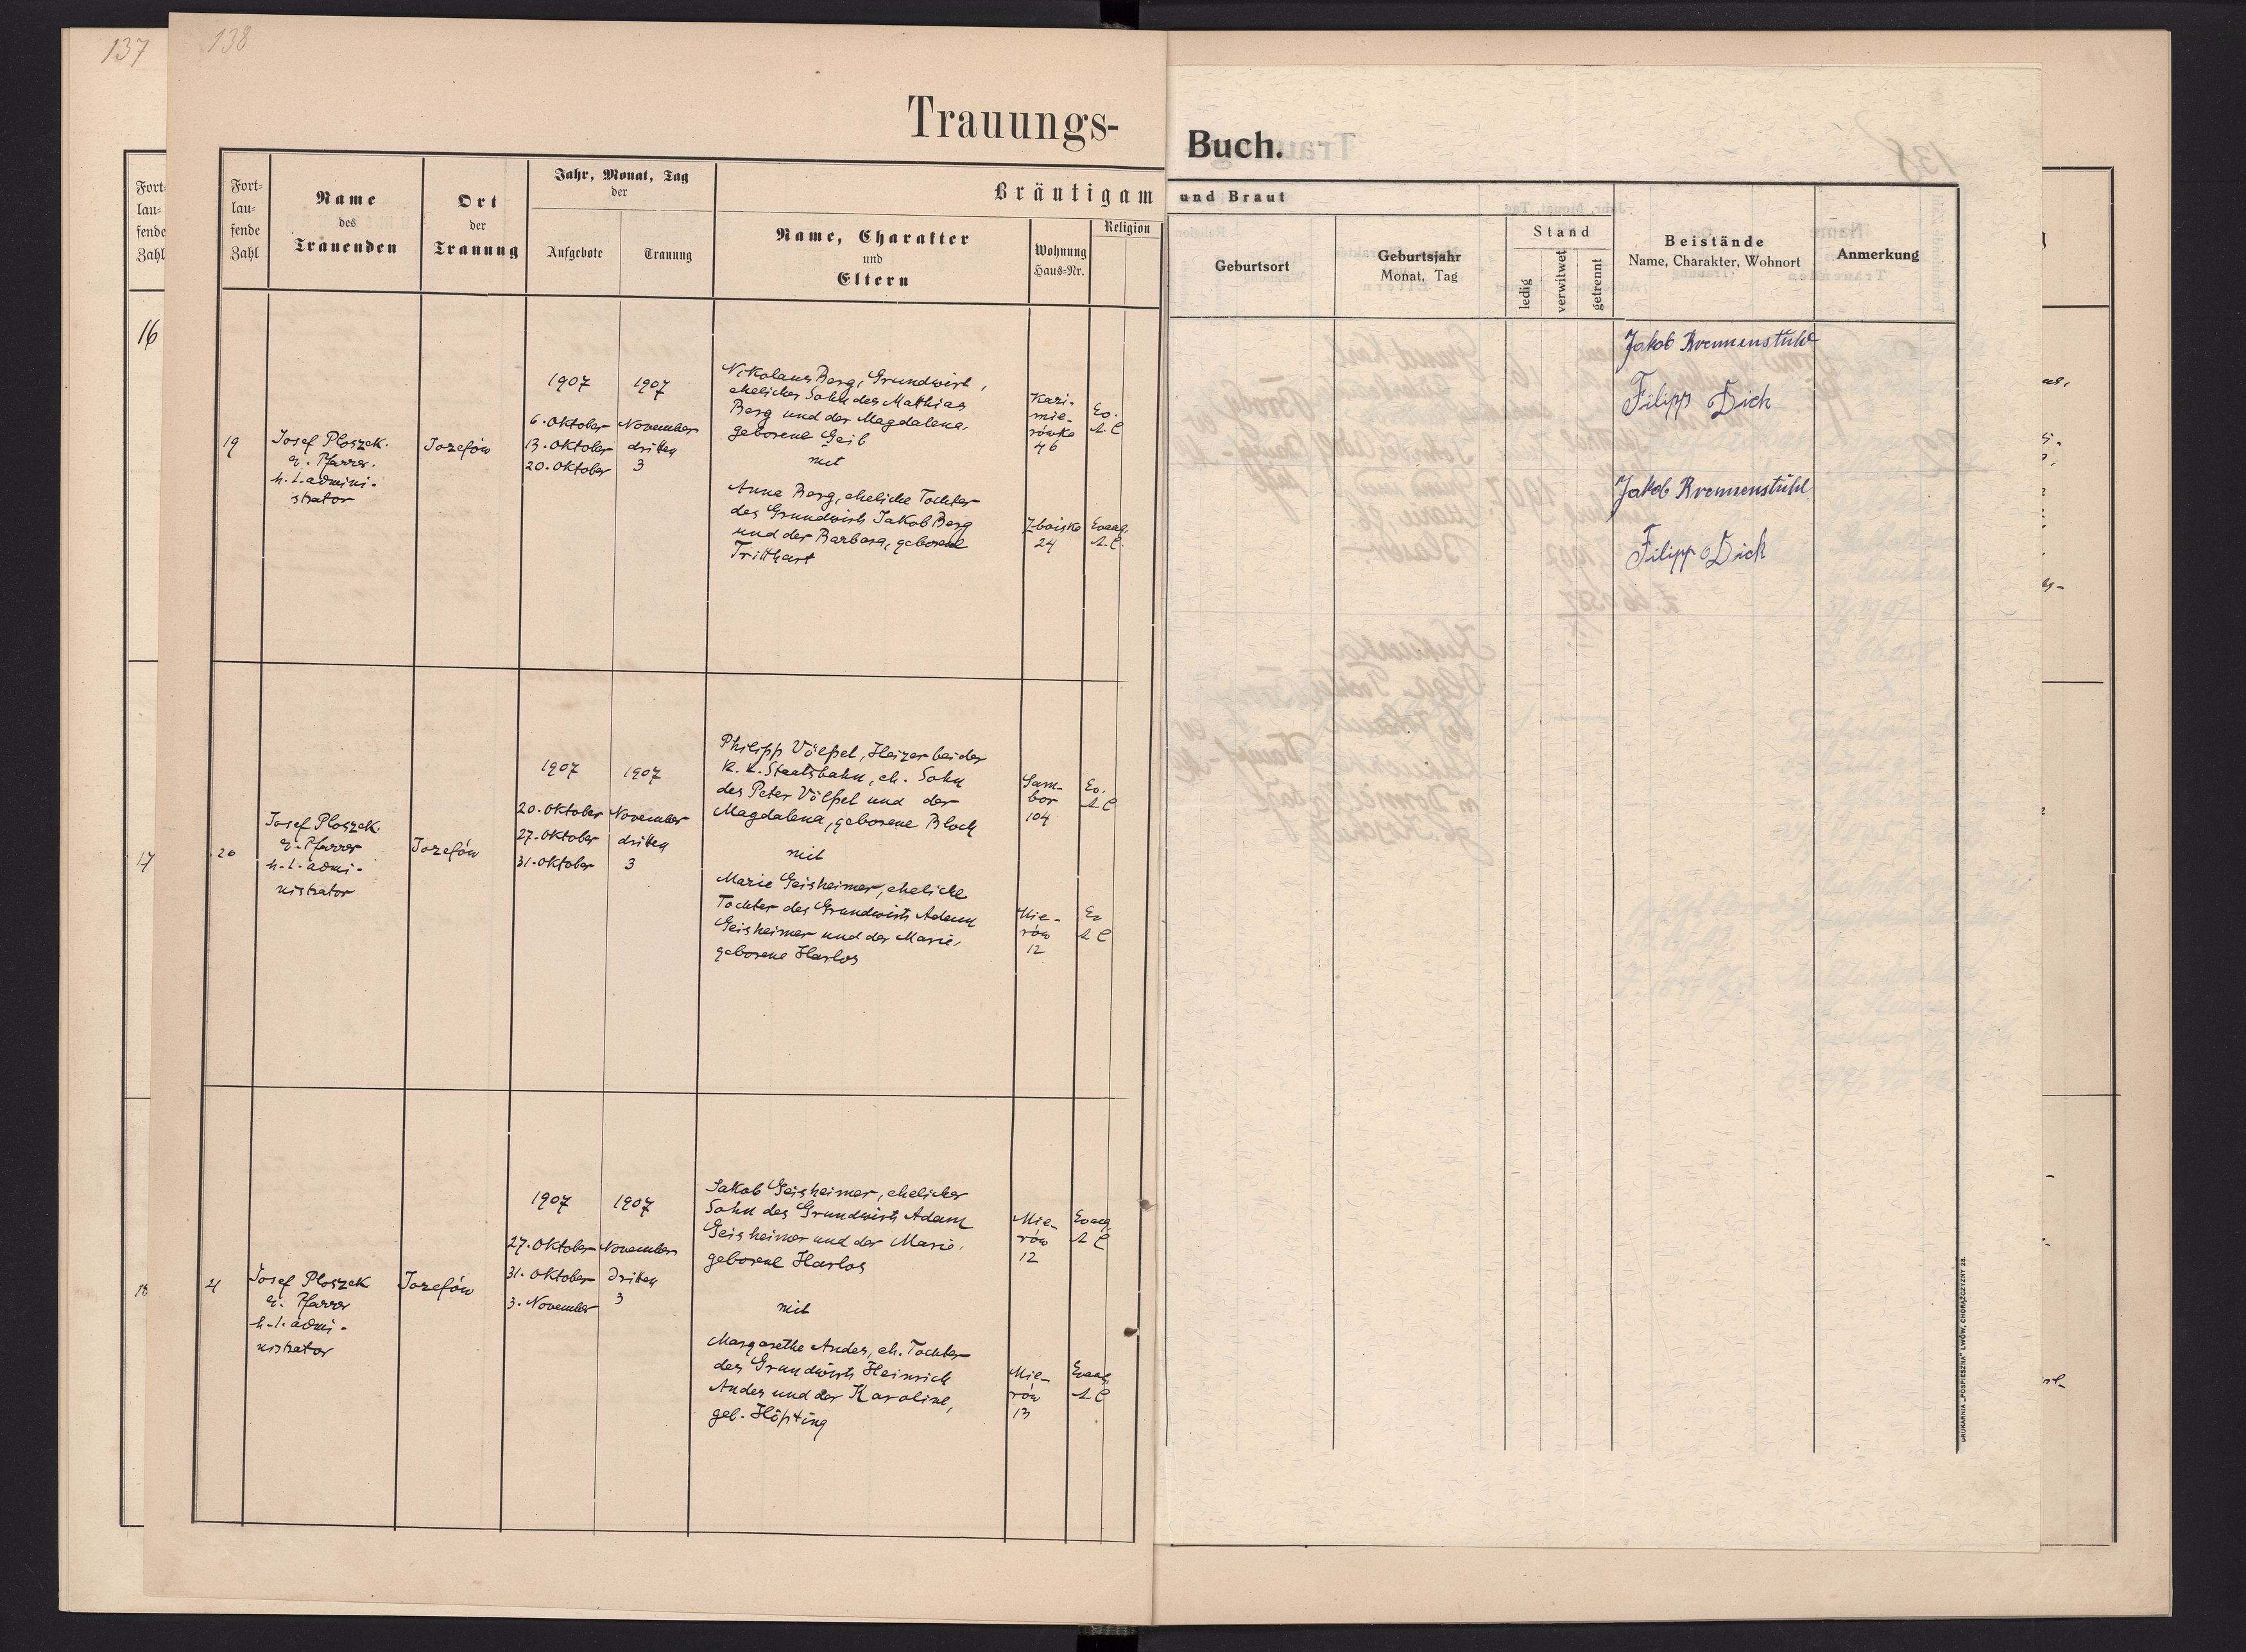 137
138
Trauungs-
Buch.
Fort-
lau-
fende
Zahl
16
17
18
Fort-
lau-
fende
Zahl
Name
des
Trauenden
Ort
der
Trauung
Jahr, Monat, Tag
der
Aufgebote
Trauung
Bräutigam
und Braut
Name, Charakter
und
Eltern
Wohnung
Haus-Nr.
Religion
Geburtsort
Geburtsjahr
Monat, Tag
Stand
ledig
verwitwet
getrennt
Beistände
Name, Charakter, Wohnort
Anmerkung
19
Josef Ploszek
ev. Pfarrer
h. l. admini-
strator
Jozefów
1907
6. Oktober
13. Oktober
20. Oktober
1907
November
dritten
3
Nikolaus Berg, Grundwirt,
ehelicher Sohn des Mathias
Berg und der Magdalena,
geborene Geib
mit
Anna Berg, eheliche Tochter
des Grundwirts Jakob Berg
und der Barbara, geborene
Tritthart
Kazi-
mie-
rówka
46
Ev.
A. C
Zboiska
24
Evang.
A. C.
Jakob Brennenstuhl
Filipp Dick
Jakob Brennenstühl
Filipp Dick
20
Josef Ploszek
ev. Pfarrer
h. l. admi-
nistrator
Jozefów
1907
20. Oktober
27. Oktober
31. Oktober
1907
November
dritten
3
Philipp Völpel, Heizer bei der
k. k. Staatsbahn, eh. Sohn
des Peter Völpel und der
Magdalena, geborene Bloch
mit
Marie Geisheimer, eheliche
Tochter des Grundwirts Adam
Geisheimer und der Marie,
geborene Harlos
Sam-
bor
104
Ev.
A C
Mie-
rów
12
Ev
A C
21
Josef Ploszek
ev. Pfarrer
h. l. admi-
nistrator
Jozefów
1907
27. Oktober
31. Oktober
3. November
1907
November
dritten
3
Jakob Geisheimer, ehelicher
Sohn des Grundwirts Adam
Geisheimer und der Marie,
geborene Harlos
mit
Margarethe Andes, eh. Tochter
des Grundwirts Heinrich
Andes und der Karoline,
geb. Höpting
Mie-
rów
12
Evang
A C
Mie-
rów
13
Evang.
A C
DRUKARNIA „POSPIESZNA" LWÓW, CHORĄŻCZYZNY 28.